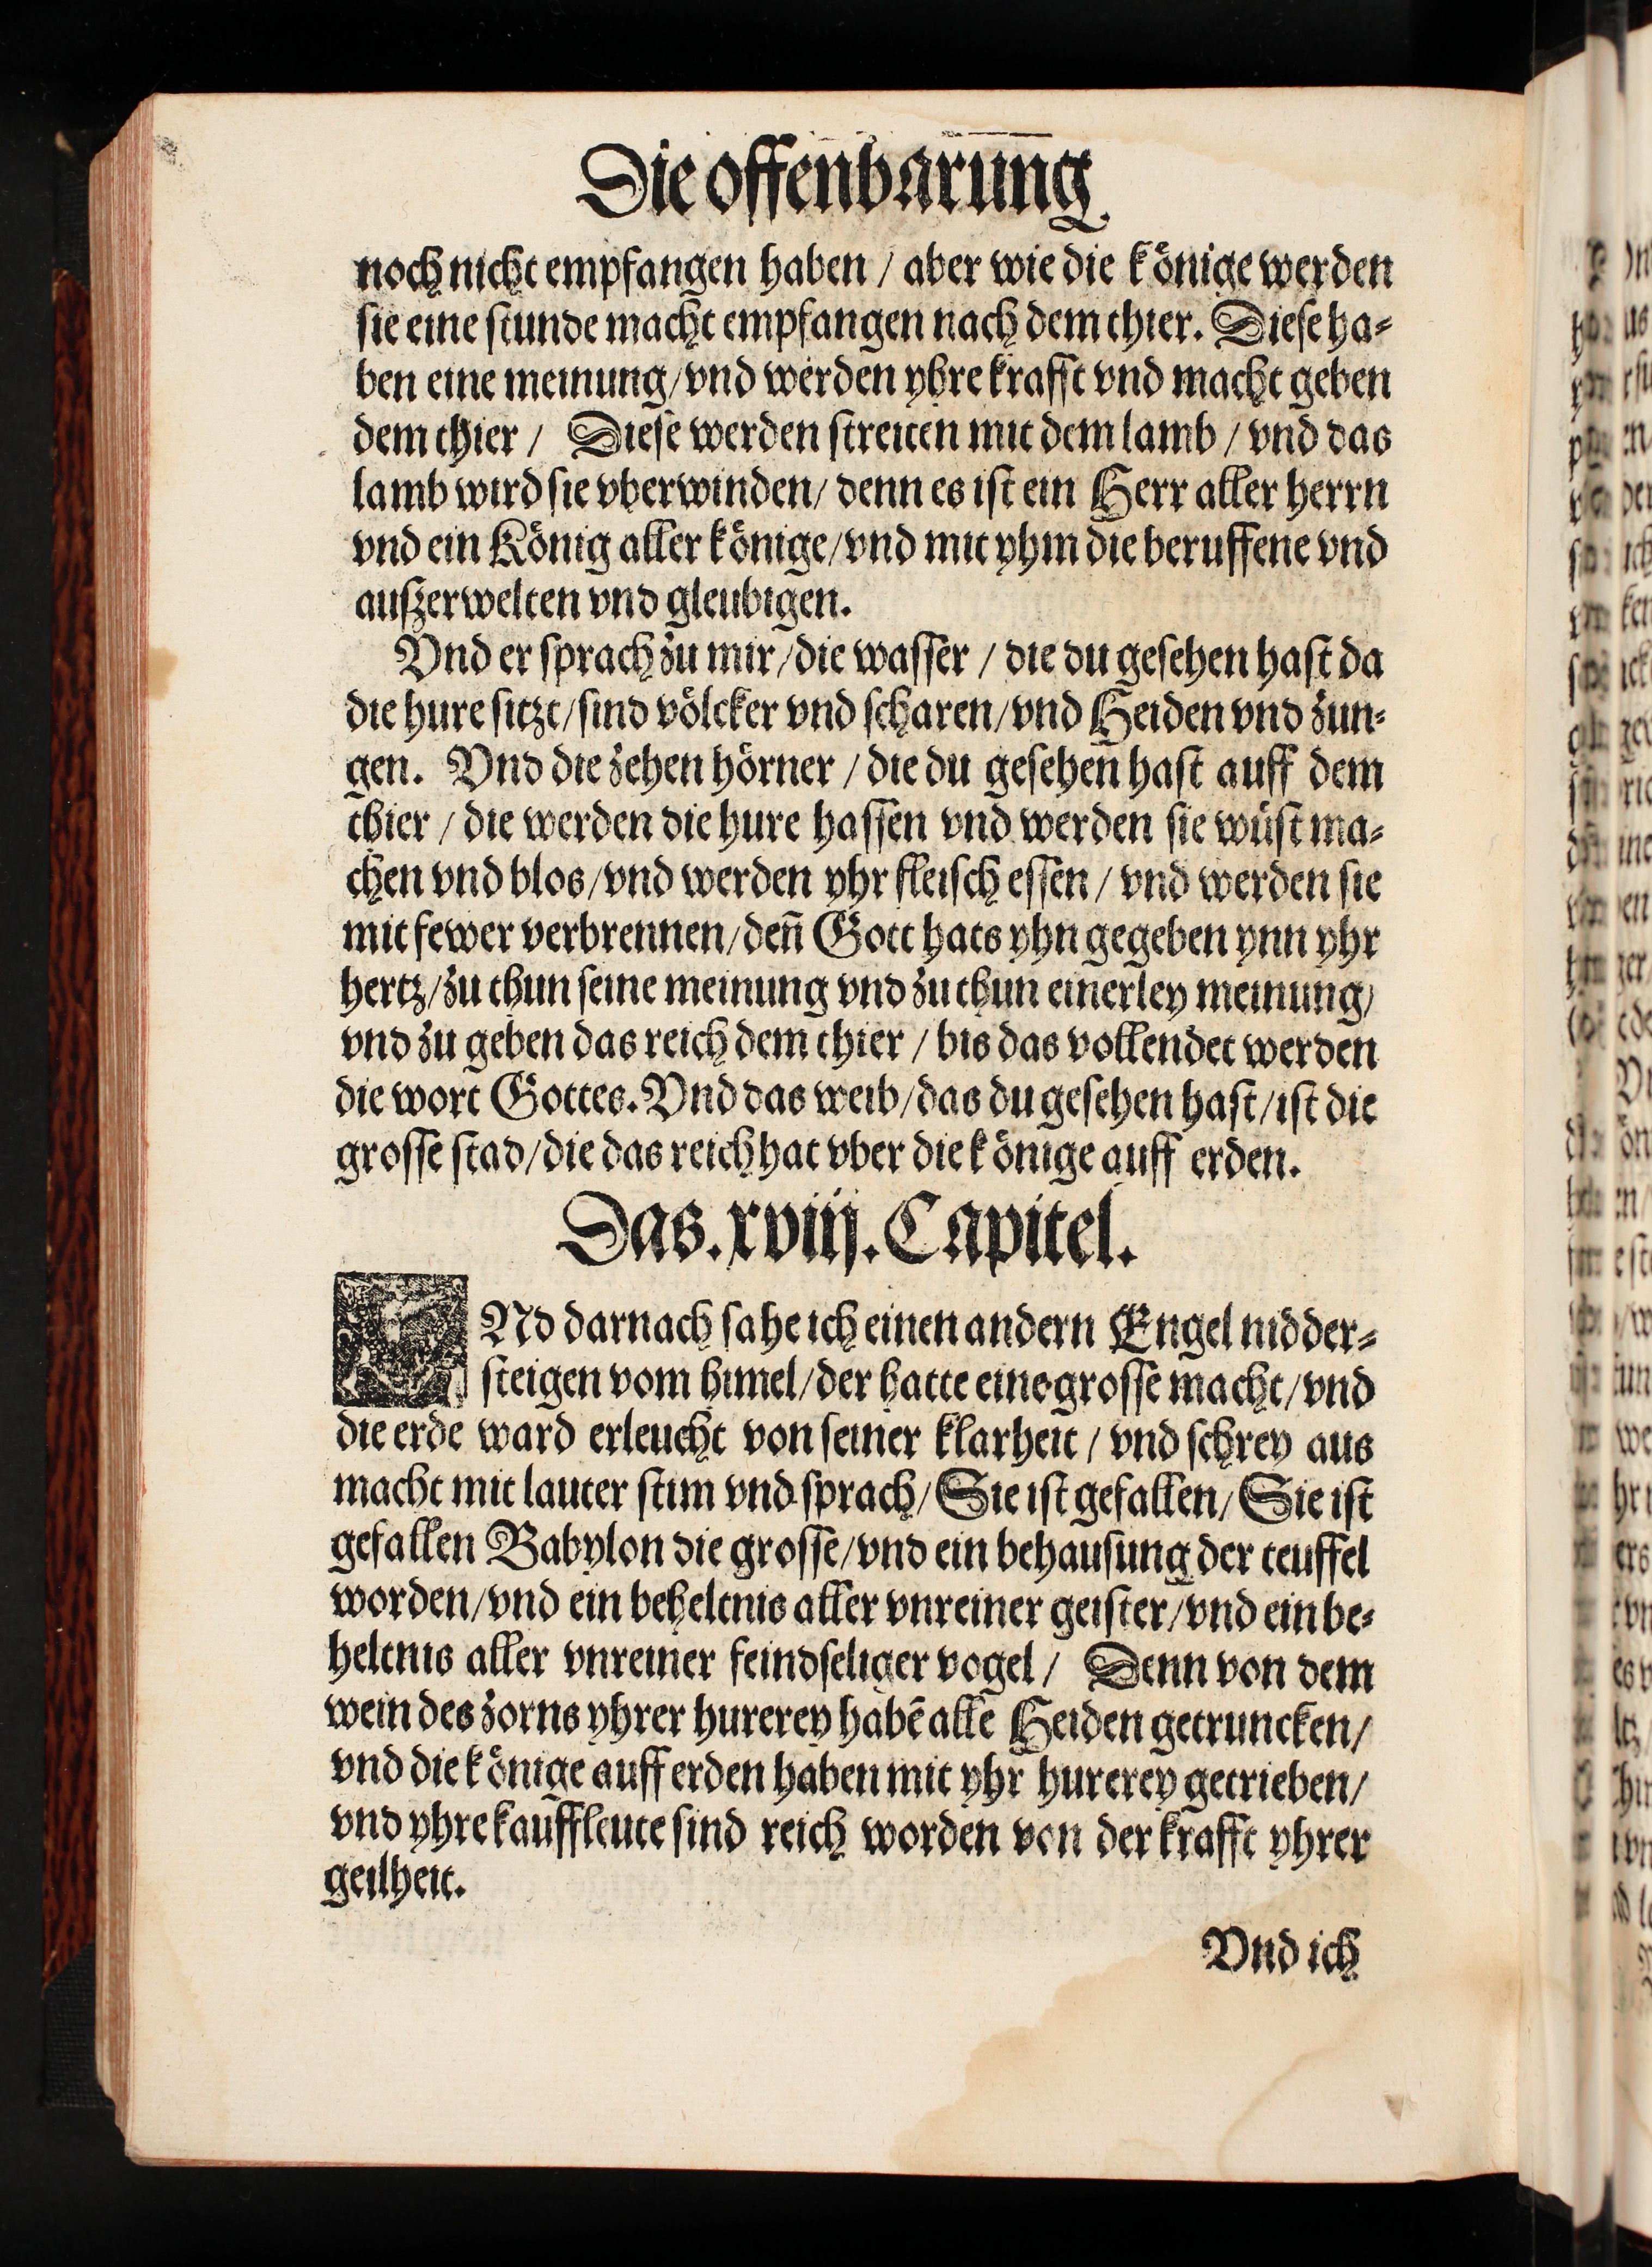 Die offenbarung
noch nicht empfangen haben / aber wie die könige werden
sie eine stunde macht empfangen nach dem thier. Diese ha⸗
ben eine meinung/vnd werden yhre krafft vnd macht geben
dem thier / Diese werden streiten mit dem lamb / vnd das
lamb wird sie vberwinden/ denn es ist ein Herr aller herrn
vnd ein König aller könige/vnd mit yhm die beruffene vnd
außerwelten vnd gleubigen.
Vnd er sprach zu mir/die wasser / die du gesehen hast da
die hure sitzt/sind völcker vnd scharen/vnd Heiden vnd zun⸗
gen. Vnd die zehen hörner / die du gesehen hast auff dem
thier / die werden die hure hassen vnd werden sie wüst ma⸗
chen vnd blos/vnd werden yhr fleisch essen / vnd werden sie
mit fewer verbrennen/deñ Gott hats yhn gegeben ynn yhr
hertz/zu thun seine meinung vnd zu thun einerley meinung/
vnd zu geben das reich dem thier / bis das vollendet werden
die wort Gottes. Vnd das weib/das du gesehen hast/ist die
grosse stad/die das reich hat vber die könige auff erden.
Das .xviij. Capitel.
VNd darnach sahe ich einen andern Engel nidder⸗
steigen vom himel/der hatte eine grosse macht/vnd
die erde ward erleucht von seiner klarheit / vnd schrey aus
macht mit lauter stim vnd sprach/Sie ist gefallen/Sie ist
gefallen Babylon die grosse/vnd ein behausung der teuffel
worden/vnd ein beheltnis aller vnreiner geister/vnd ein be⸗
heltnis aller vnreiner feindseliger vogel / Denn von dem
wein des zorns yhrer hurerey habē alle Heiden getruncken/
vnd die könige auff erden haben mit yhr hurerey getrieben/
vnd yhre kauffleute sind reich worden von der krafft yhrer
geilheit.
Vnd ich